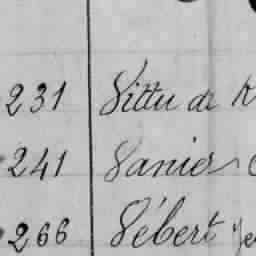 231 Vittu de K
241 Vanier
266 Vébert